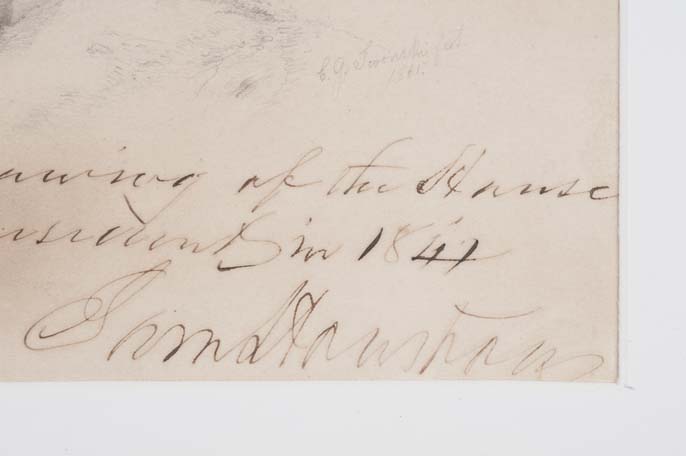 C. G. Iwonski fect.
1861.
awing of the House
esident in 1841
Sam Houston